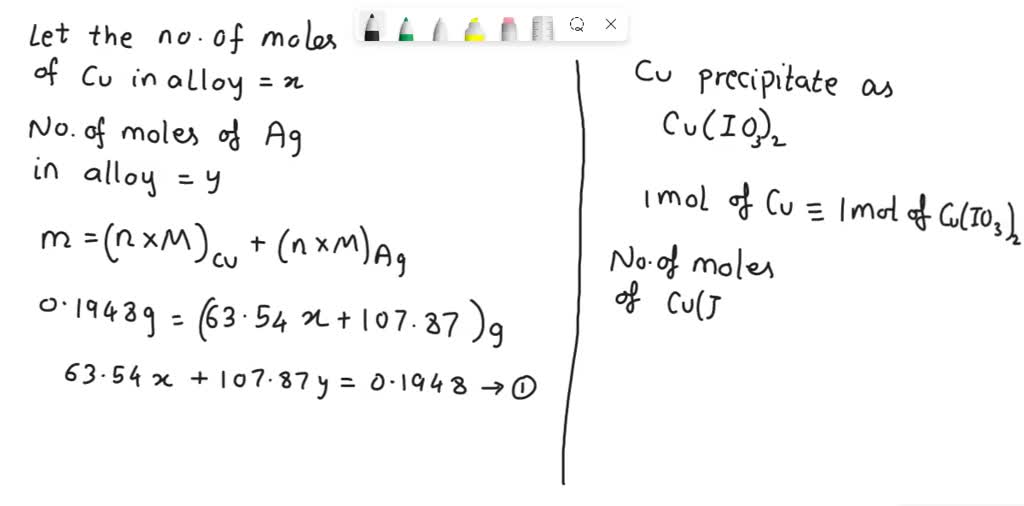 Let the no. of moles
of Cu in alloy = x
No. of moles of Ag
in alloy = y
m = (n×M)Cu + (n×M)Ag
0.1948g = (63.54 x + 107.87 )g
63.54x + 107.87y = 0.1948 → ①
Cu precipitate as
Cu(IO3)2
1mol of Cu ≡ 1mol of Cu(IO3)2
No. of moles
of Cu(I